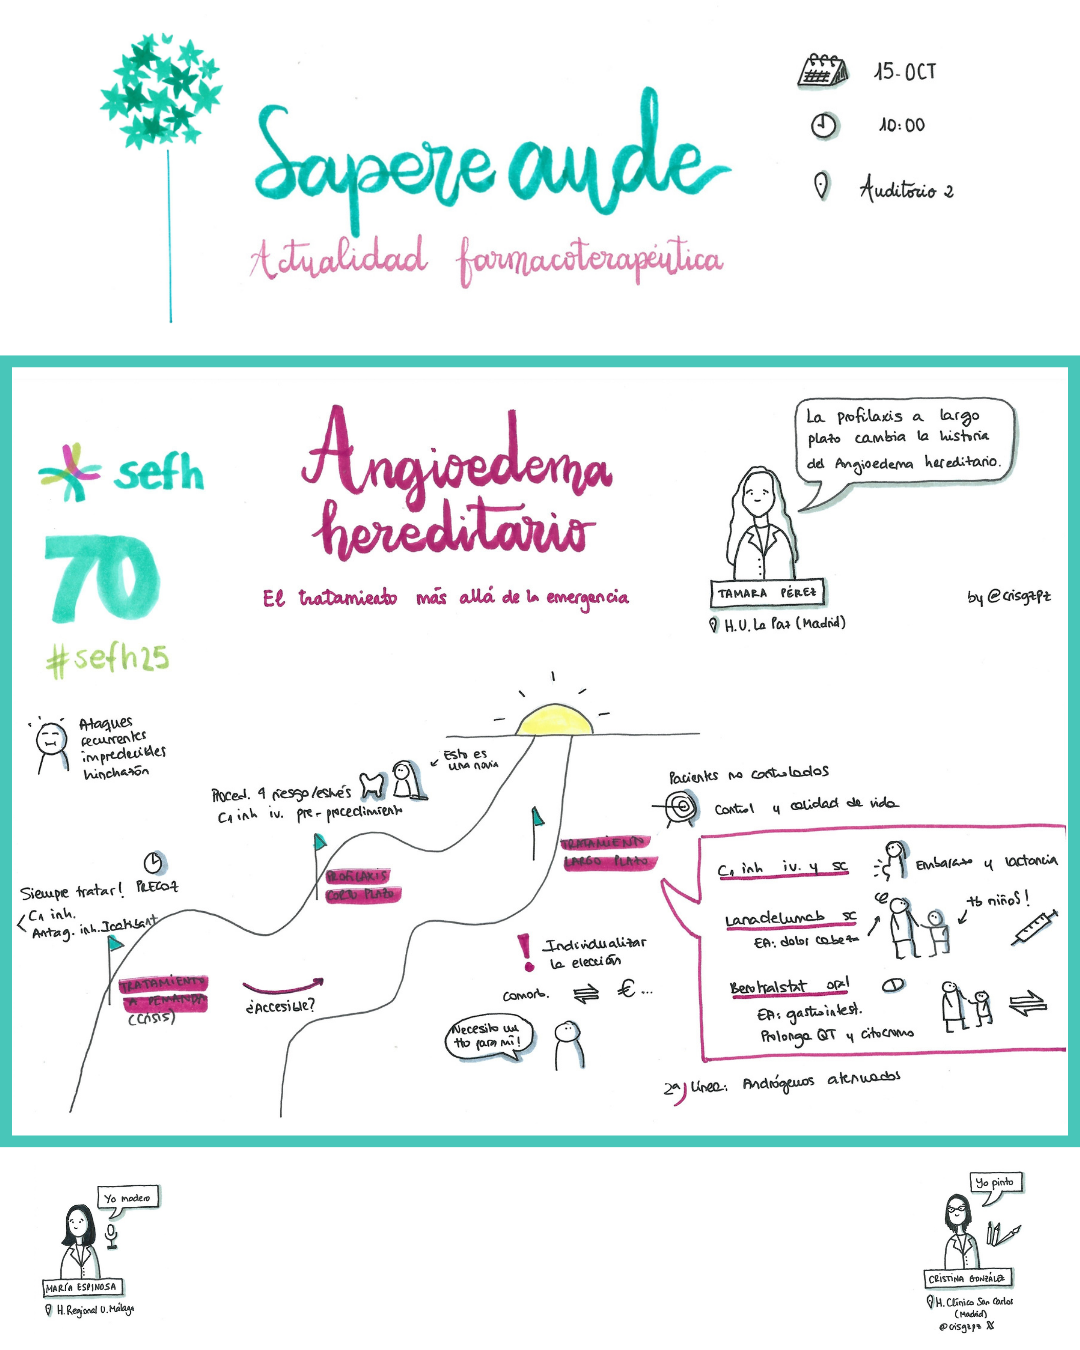 Sapere aude
Actualidad farmacoterapéutica
15-OCT
10:00
Auditorio 2
sefh
70
#sefh25
Angioedema
hereditario
El tratamiento más allá de la emergencia
La profilaxis a largo
plazo cambia la historia
del Angioedema hereditario.
TAMARA PÉREZ
H.U. La Paz (Madrid)
by @crisgzpz
Ataques
recurrentes
impredecibles
hinchazón
Proced. ↑ riesgo/estrés
C1 inh iv. pre-procedimiento
Esto es
una novia
Siempre tratar!
PRECOZ
C1 inh.
Antag. inh. Icatibant
TRATAMIENTO
A DEMANDA
(CRISIS)
¿Accesible?
PROFILAXIS
CORTO PLAZO
TRATAMIENTO
LARGO PLAZO
! Individualizar
la elección
Comorb. ⇌ €...
Necesito un
tto para mí!
Pacientes no controlados
Control y calidad de vida
C1 inh iv. y sc
Embarazo y lactancia
Lanadelumab sc
EA: dolor cabeza
tb niños!
Berotralstat oral
EA: gastrointest.
Prolonga QT y citocromo
2ª línea: Andrógenos atenuados
Yo modero
MARÍA ESPINOSA
H. Regional U. Málaga
Yo pinto
CRISTINA GONZÁLEZ
H. Clínico San Carlos
(Madrid)
@crisgzpz X